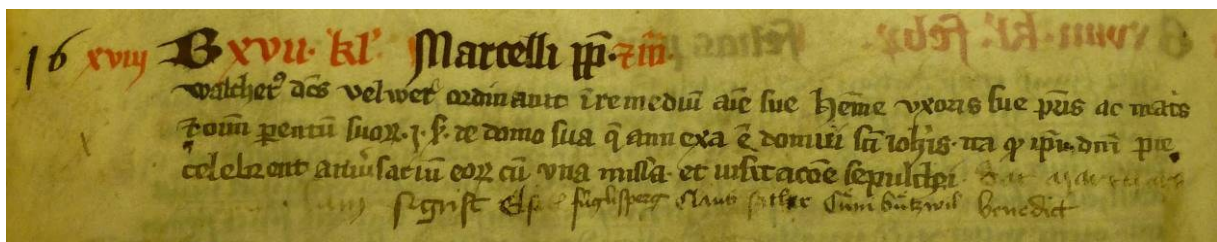 16 xviii B xvii. kl'. Marcelli pp. ⁊ m̄.
walther᷒ dc̄s velwer ordinauit ī remediū aīe sue Hem̄e vxoris sue pr̄is ac mat̄s
⁊ om̄ parentū suoꝝ. j. ß. de domo sua q̄ annexa ē domui sc̄i ioh̄is. ita ꝙ ipī. dn̄i
celebrent anīu̇sariū eoꝝ cū vna missa. et uisitacōe sepulchri.
sigrist Elsi füglisperg Clauß Cůni bůtzwil benedict